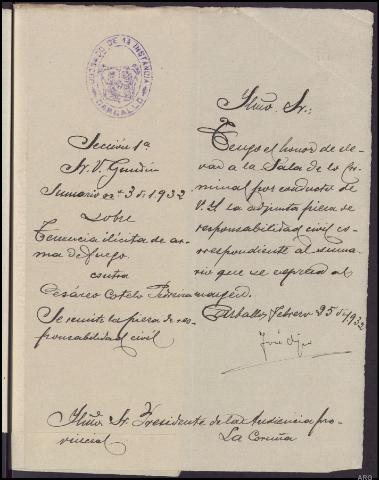 JUZGADO DE 1ª INSTANCIA
CARBALLO
Sección 1ª
Sr. V. Gundín
Sumario nº 43 de 1932
Sobre
Tenencia ilícita de ar-
ma de fuego.
contra
Cesáreo Cotelo
Se remite la pieza de res-
ponsabilidad civil
Iltmo. Sr.:
Tengo el honor de ele-
var a la Sala de lo Cri-
minal por conducto de
V.I. la adjunta pieza de
responsabilidad civil co-
rrespondiente al suma-
rio que se expresa al
margen.
Carballo, Febrero 25 de 1932
José
Iltmo. Sr. Presidente de la Audiencia pro-
vincial La Coruña
ARG